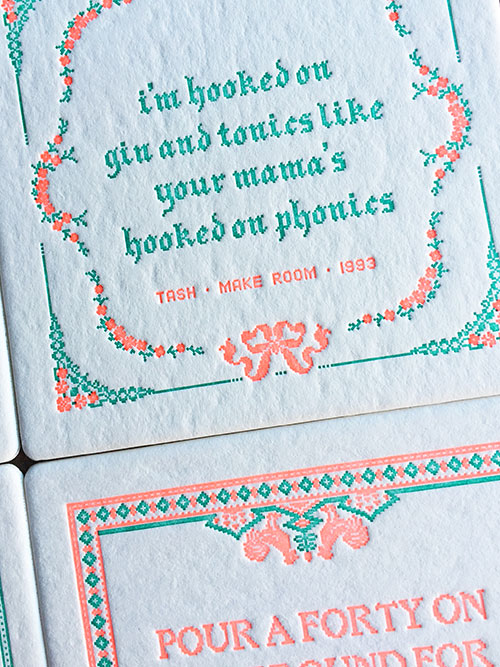 i'm hooked on
gin and tonics like
your mama's
hooked on phonics
TASH · MAKE ROOM · 1993
POUR A FORTY ON
ROUND FOR